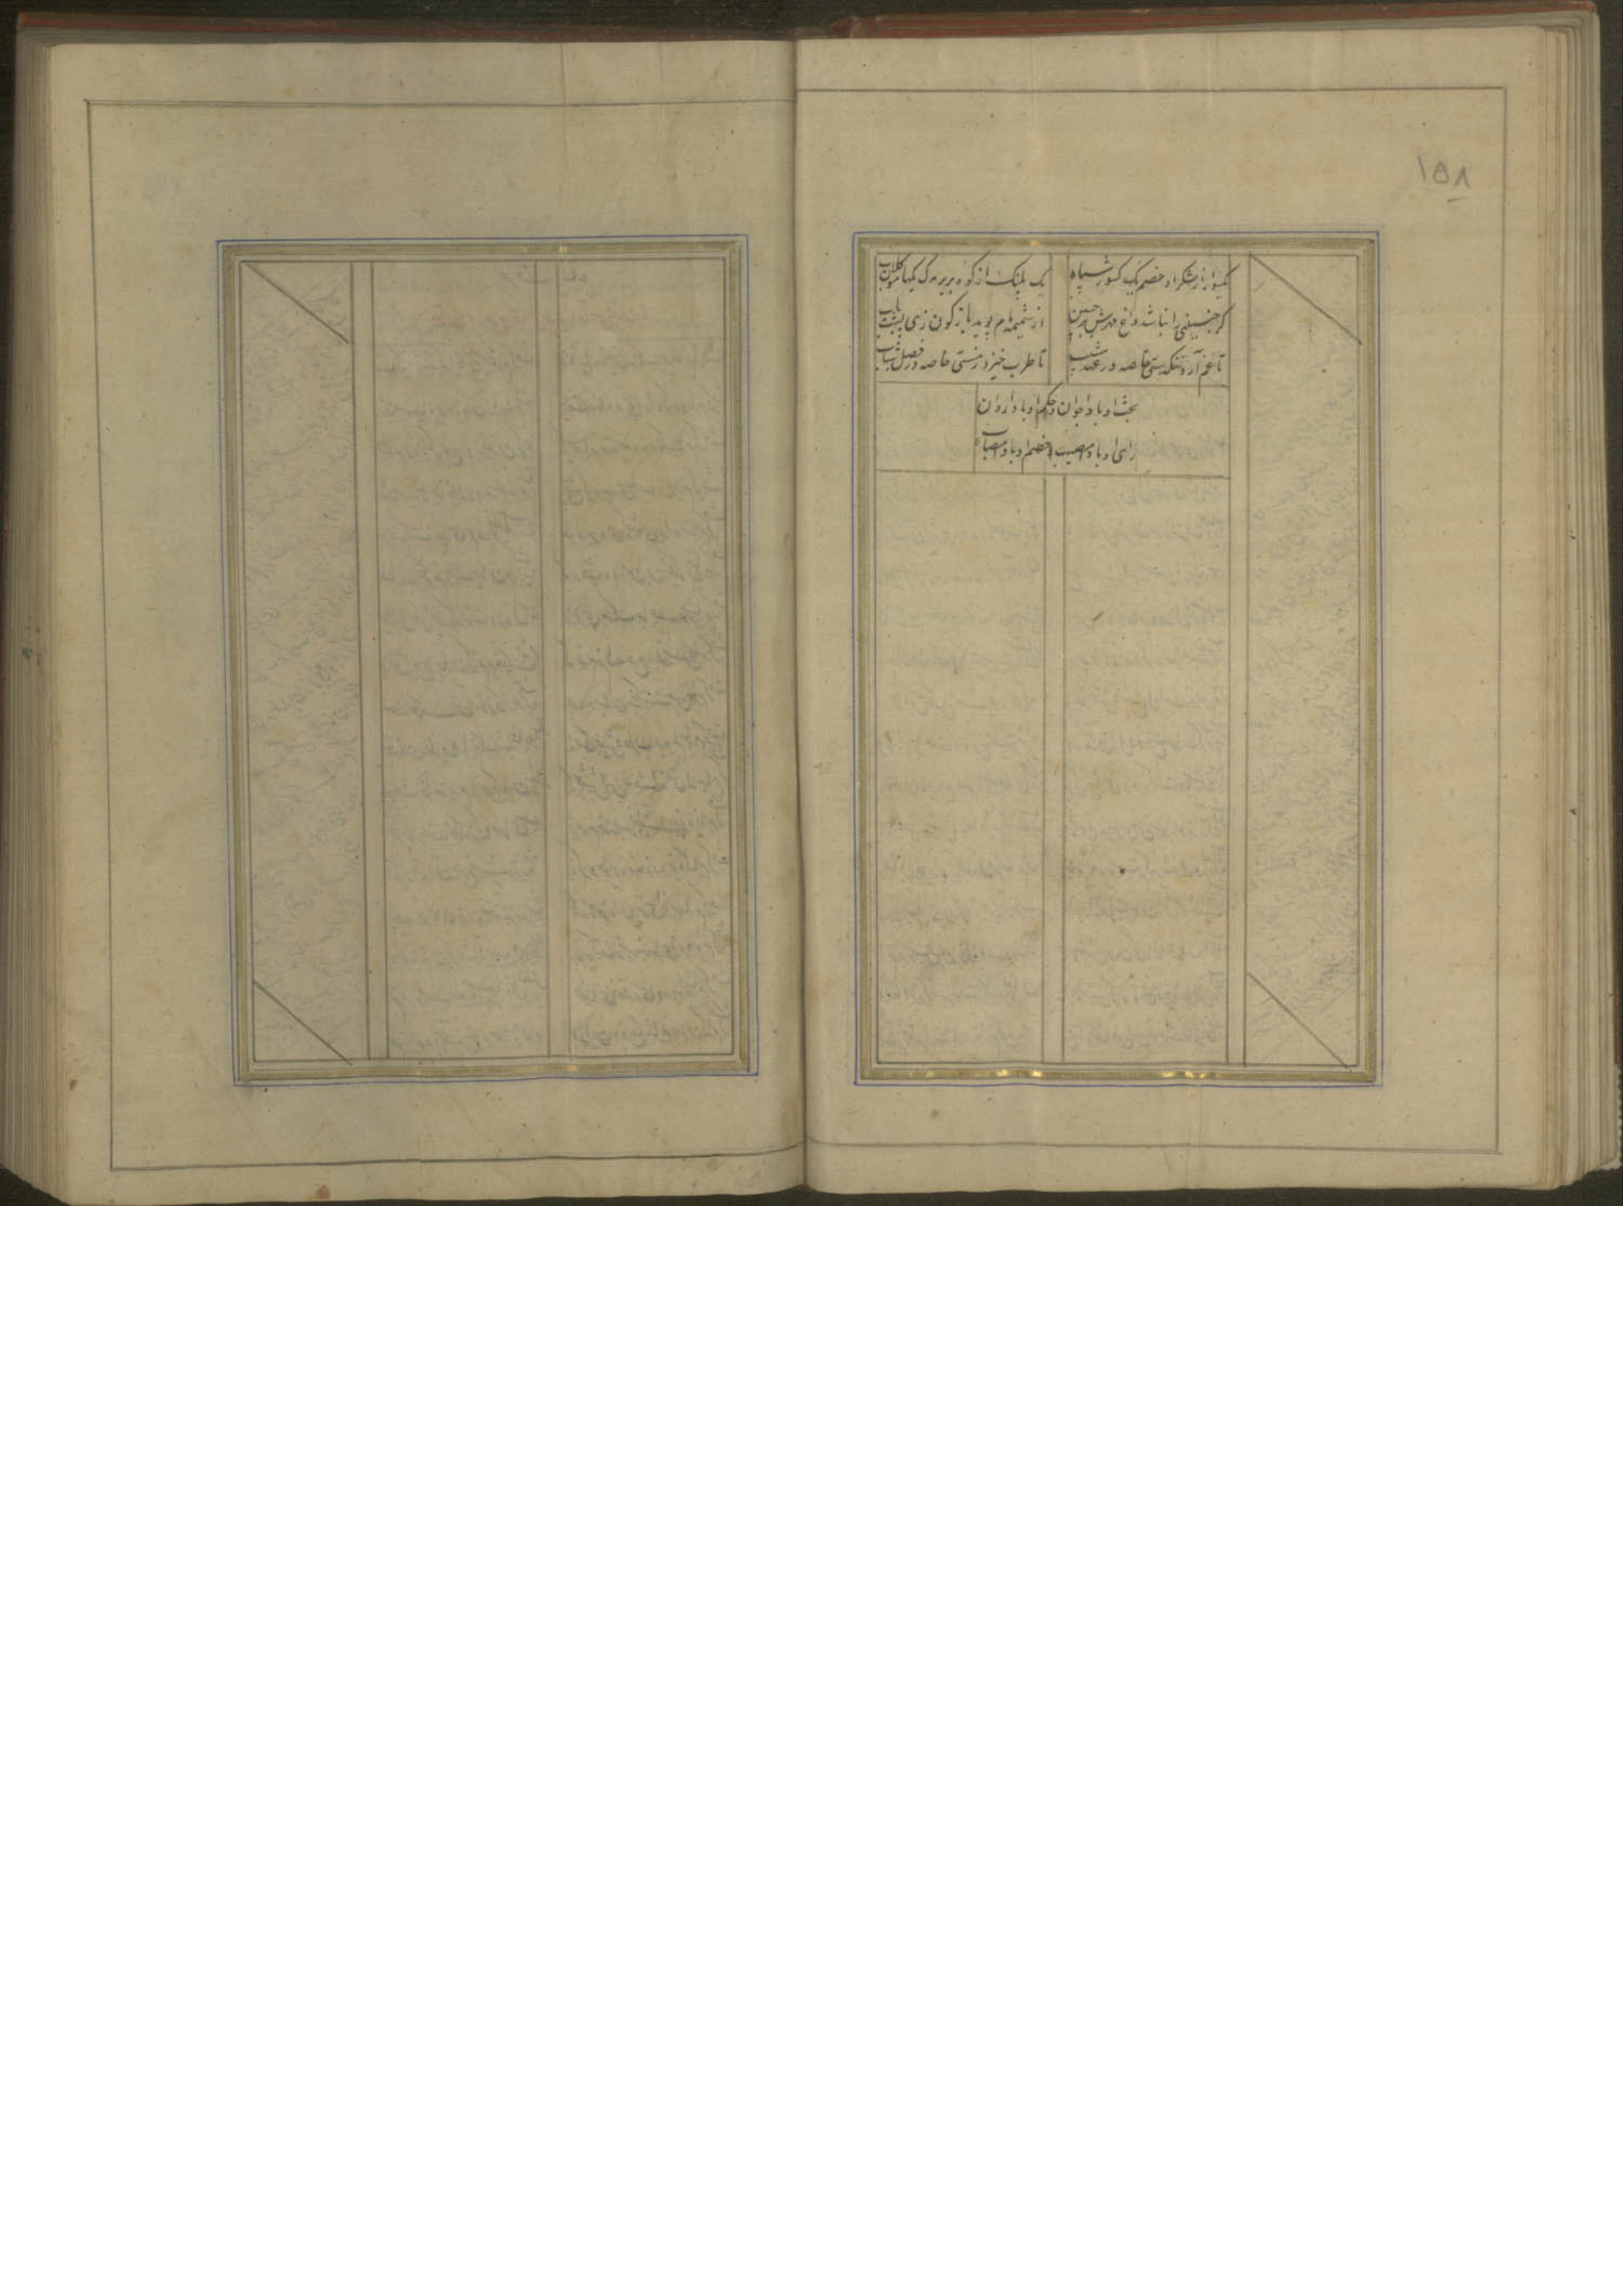 ۱۵۸
یکسوار از لشکر او خصم یک کشور سپاه
یک پلنگ از کوه بربر مرگ یکهامون کلاب
گر جنینی را نباشد داغ مهرش بر جبین
از مشیمه مام پوید بازگون زی پشت باب
تا غم آرد تنگدستی خاصه در عهد شیب
تا طرب خیزد ز مستی خاصه در فصل شباب
بخت او بادا جوان و حکم او بادا روان
رای او بادا مصیب و خصم او بادا مصاب